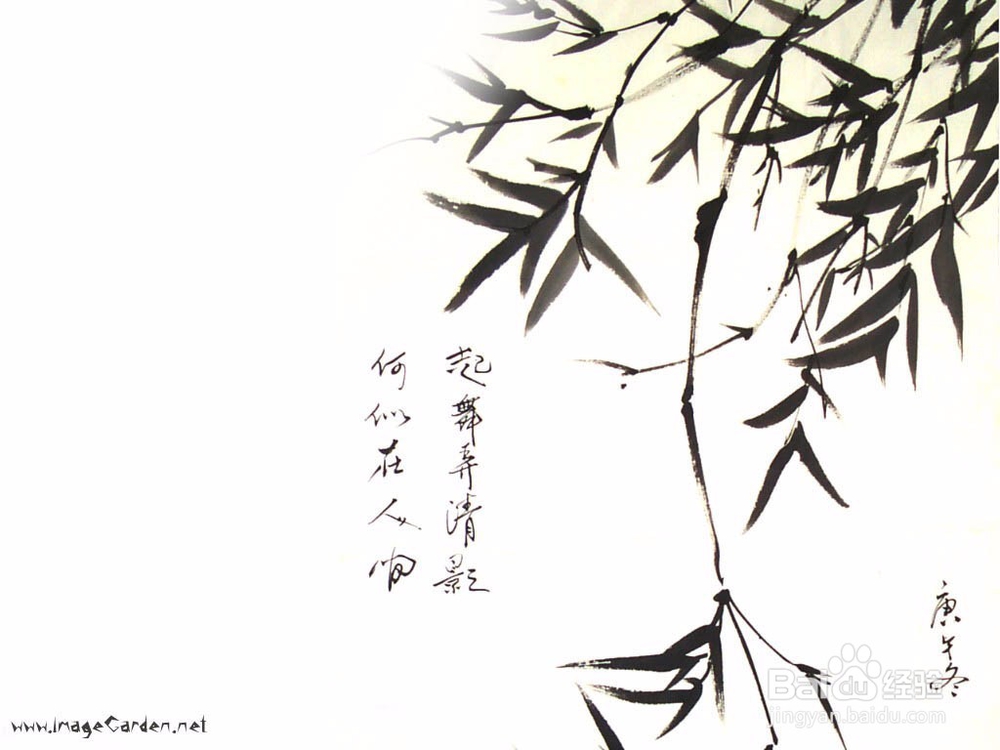 起舞弄清影
何似在人间
庚午冬
Baidu 经验
jingyan.baidu.com
www.ImageGarden.net